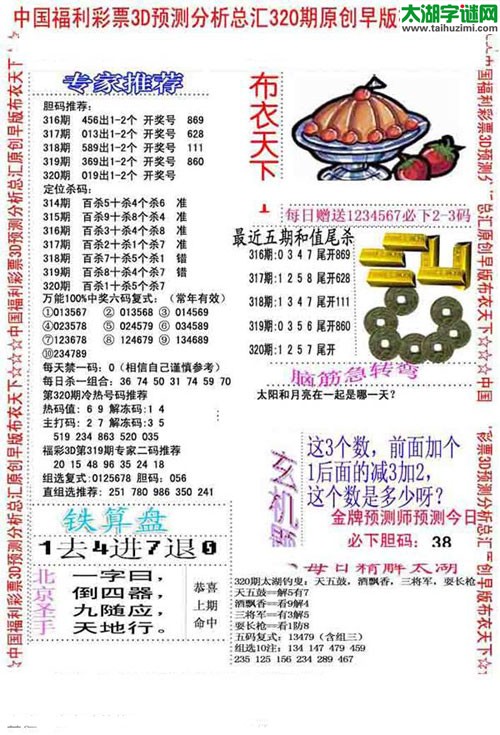 太湖字谜网
www.taihuzimi.com
中国福利彩票3D预测分析总汇320期原创早版
专家推荐
胆码推荐：
316期 456出1-2个 开奖号 869
317期 013出1-2个 开奖号 628
318期 589出1-2个 开奖号 111
319期 369出1-2个 开奖号 860
320期 019出1-2个 开奖号
定位杀码：
314期 百杀5十杀4个杀6 准
315期 百杀9十杀8个杀4 准
316期 百杀3十杀2个杀7 准
317期 百杀8十杀1个杀4 错
318期 百杀7十杀4个杀1 错
319期
320期 百杀1十杀5个杀7
万能100%中奖六码复式：（常年有效）
①013567 ② 013568 ③ 014569
④023578 ⑤ 024579 ⑥ 034589
⑦123678 ⑧ 124679 ⑨ 134689
⑩234789
每天禁一码：0（相信自己谨慎参考）
每日杀一组合：36 74 50 31 74 59 70
第320期冷热号码推荐
热码值：6 9 解冻码：1 4
主打码：2 7 解冻码：3 5
519 234 863 520 035
福彩3D第319期专家二码推荐
20 15 48 96 35 24 18
组选复式：0125678 胆码：056
直组选推荐：251 780 986 350 241
铁算盘
1去4进7退0
北京圣手
一字曰，
倒四器，
九随应，
天地行。
恭喜
上期
命中
布衣天下
每日赠送1234567必下2-3码
最近五期和值尾杀
316期:0 3 4 7 尾开869
317期:1 2 5 8 尾开628
318期:1 3 4 7 尾开111
319期:0 3 5 6 尾开860
320期:1 2 5 7 尾开
脑筋急转弯
太阳和月亮在一起是哪一天？
玄机
这3个数，前面加个
1后面的减3加2，
这个数是多少呀？
金牌预测师预测今日
必下胆码： 38
每日精解太湖
320期太湖钓叟：天五鼓，酒飘香，三将军，要长枪
天五鼓==解5有7
酒飘香==看9解4
三将军==有3解5
要长枪==看1防8
五码复式：13479（含组三）
组选10注：134 147 479 459
235 125 156 234 289 467
中国福利彩票3D预测分析总汇原创早版布衣天下☆☆☆
中国福利彩票3D预测分析总汇原创早版布衣天下☆☆☆中国